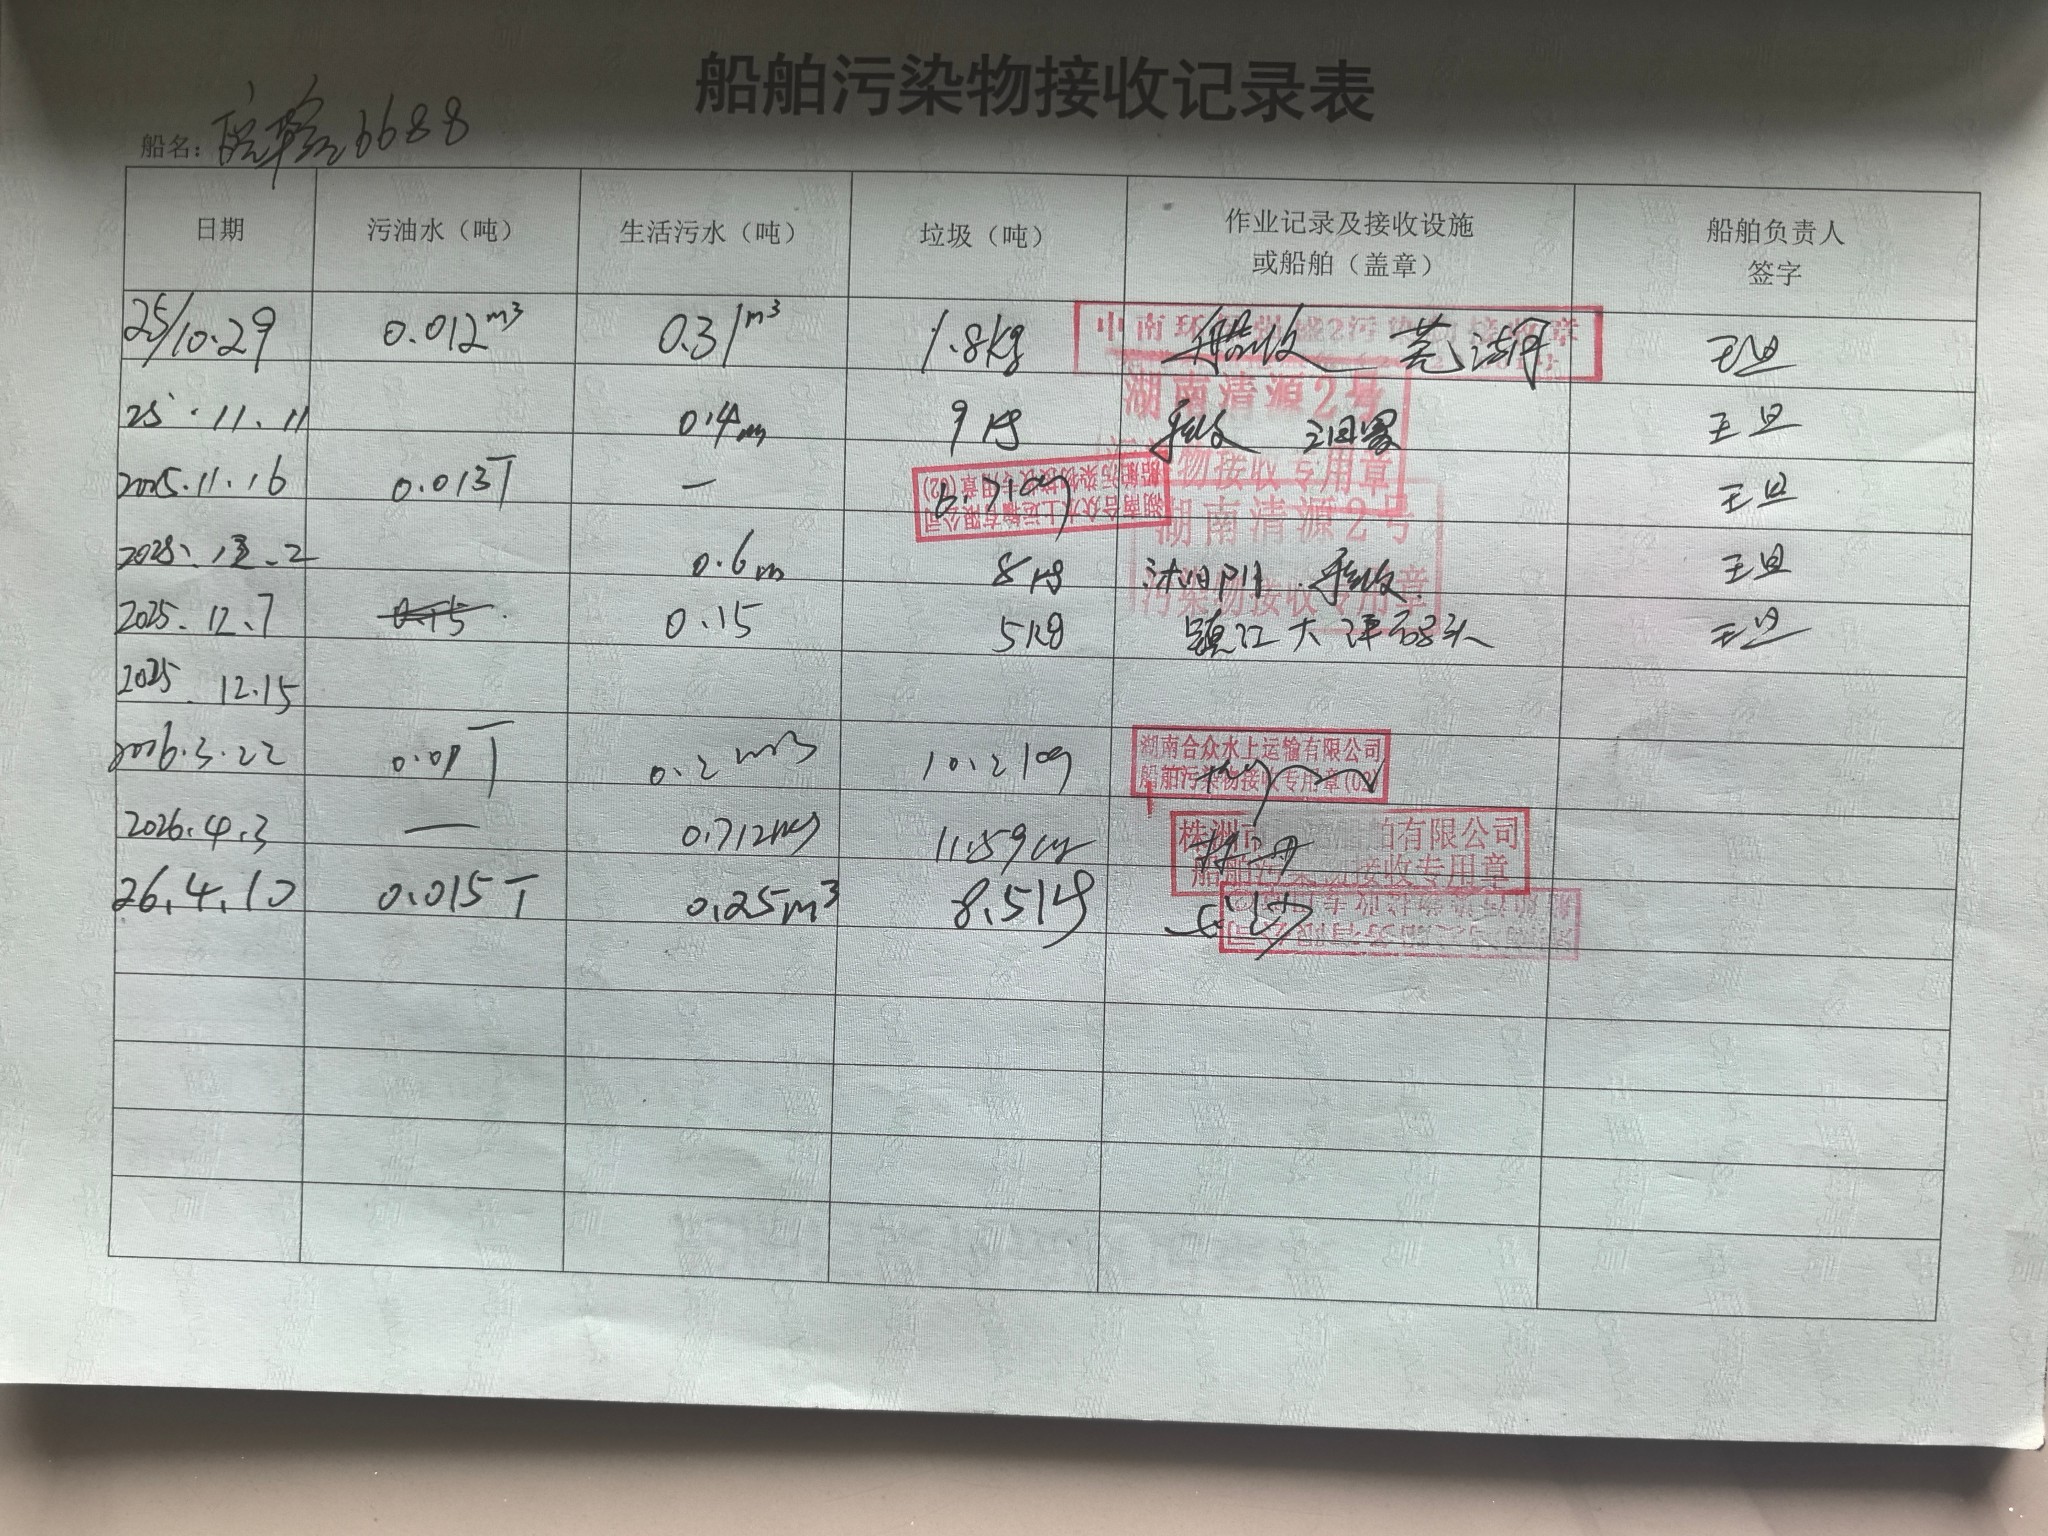 船舶污染物接收记录表
船名： 皖 6688
日期 污油水（吨） 生活污水（吨） 垃圾（吨） 作业记录及接收设施或船舶（盖章） 船舶负责人签字
25/10.29 0.012m³ 0.31m³ 1.8kg 船收 芜湖 王旦
中南环 2污染物接收章
湖南清源2号
物接收专用章
25.11.11 0.4m 9kg 接收 王旦
2025.11.16 0.013T — 王旦
湖南合众水上运输有限公司
船舶污染物接收专用章(02)
湖南清源2号
污染物接收专用章
2025.12.2 0.6m 8kg 接收 王旦
2025.12.7 0.15 0.15 5kg 镇江大津码头 王旦
2025.12.15
2026.3.22 0.01T 0.2m3 10.2kg
湖南合众水上运输有限公司
船舶污染物接收专用章(02)
2026.4.3 — 0.712m3 11.59kg
株洲市 船舶有限公司
船舶污染物接收专用章
26.4.10 0.015T 0.25m³ 8.51kg 长沙